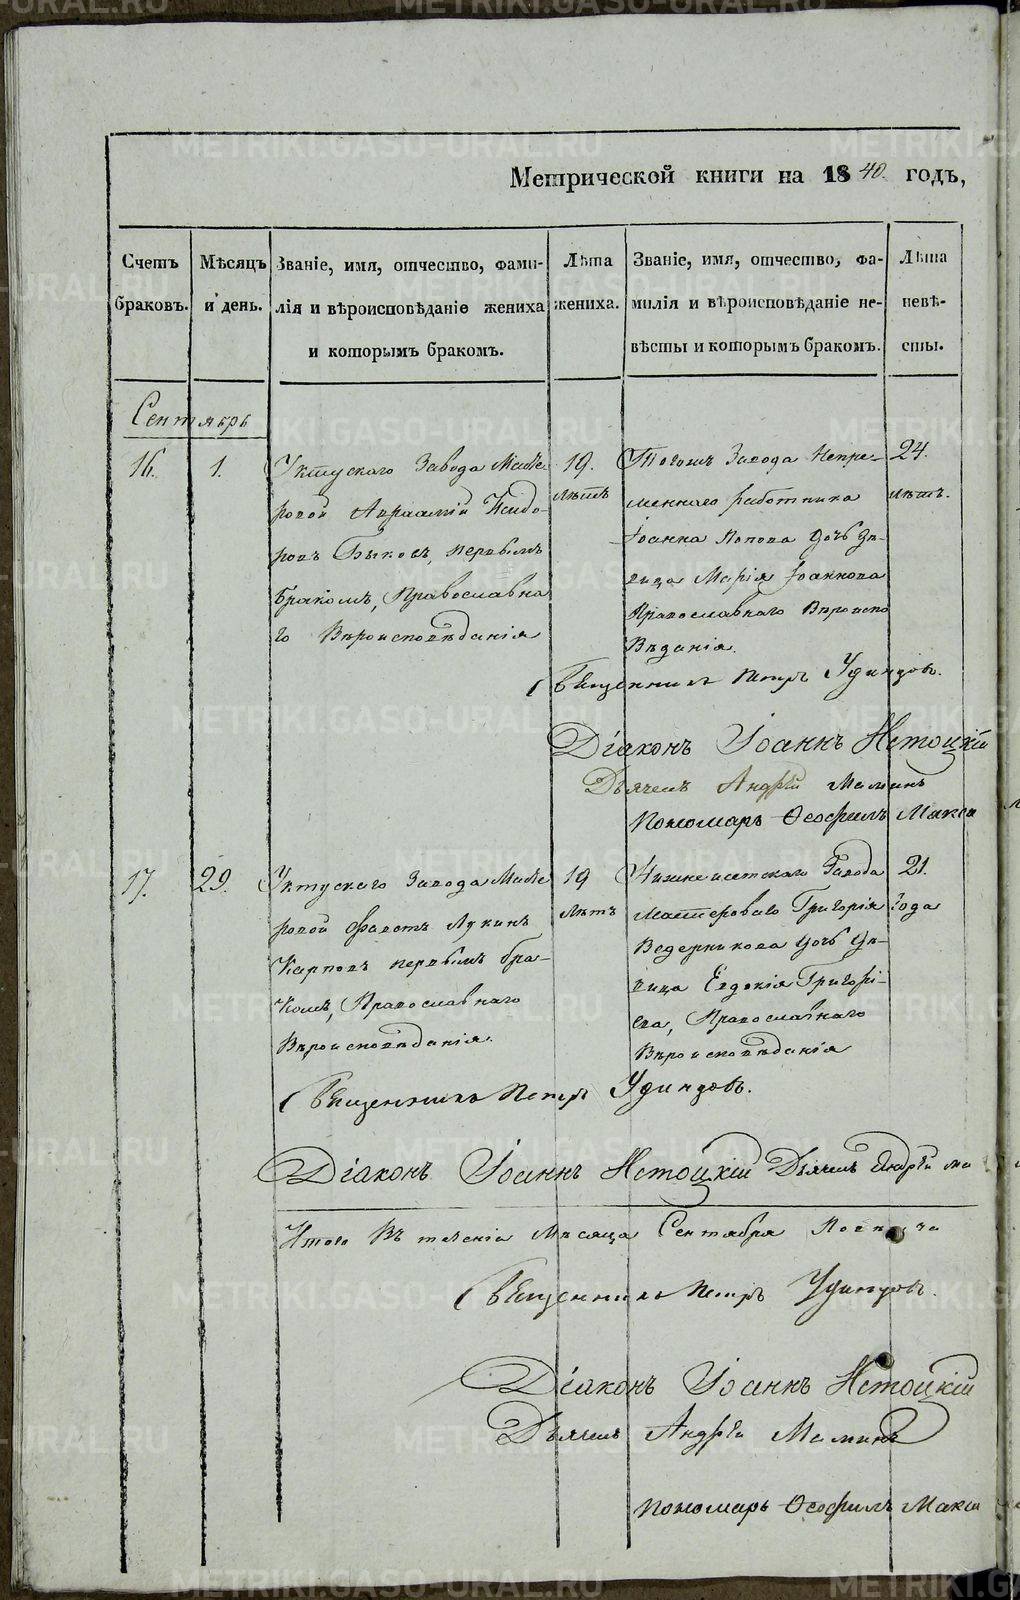 Метрической книги на 1840. годъ,
Счетъ браковъ.
Мѣсяцъ и день.
Званіе, имя, отчество, фами-
лія и вѣроисповѣданіе жениха
и которымъ бракомъ.
Лѣта жениха.
Званіе, имя, отчество, фа-
милія и вѣроисповѣданіе не-
вѣсты и которымъ бракомъ.
Лѣта невѣ-
сты.
Сентябрь
16. 1.
Уктускаго Завода Масте
ровой Авраамій Исидо-
ровъ Быковъ, первымъ
бракомъ, Православна
го Вѣроисповѣданія
19.
лѣтъ
Тогожъ Завода Непре-
меннаго работника
Іоанна Попова дочь дѣ-
вица Марія Іоаннова
Православнаго Вѣроиспо
Вѣданія.
24.
лѣтъ.
Священникъ Петръ Удинцовъ.
Діаконъ Іоаннъ Нетоцкій
Дьячекъ Андрей Маминъ
Пономарь Ѳеофилъ Макси
17. 29.
Уктускаго Завода Масте
ровой Фавстъ Лукинъ
Карповъ первымъ бра-
комъ, Православнаго
Вѣроисповѣданія.
19
лѣтъ
Нижнеисетскаго Завода
Мастероваго Григорія
Ведерникова дочь дѣ-
вица Евдокія Григорі-
ева, Православнаго
Вѣроисповѣданія
21.
года
Священникъ Петръ Удинцовъ.
Діаконъ Іоаннъ Нетоцкій Дьячекъ Андрей Ма
Итого Въ теченіи Мѣсяца Сентября
Священникъ Петръ Удинцовъ.
Діаконъ Іоаннъ Нетоцкій
Дьячекъ Андрей Маминъ
Пономарь Ѳеофилъ Макси
METRIKI.GASO-URAL.RU